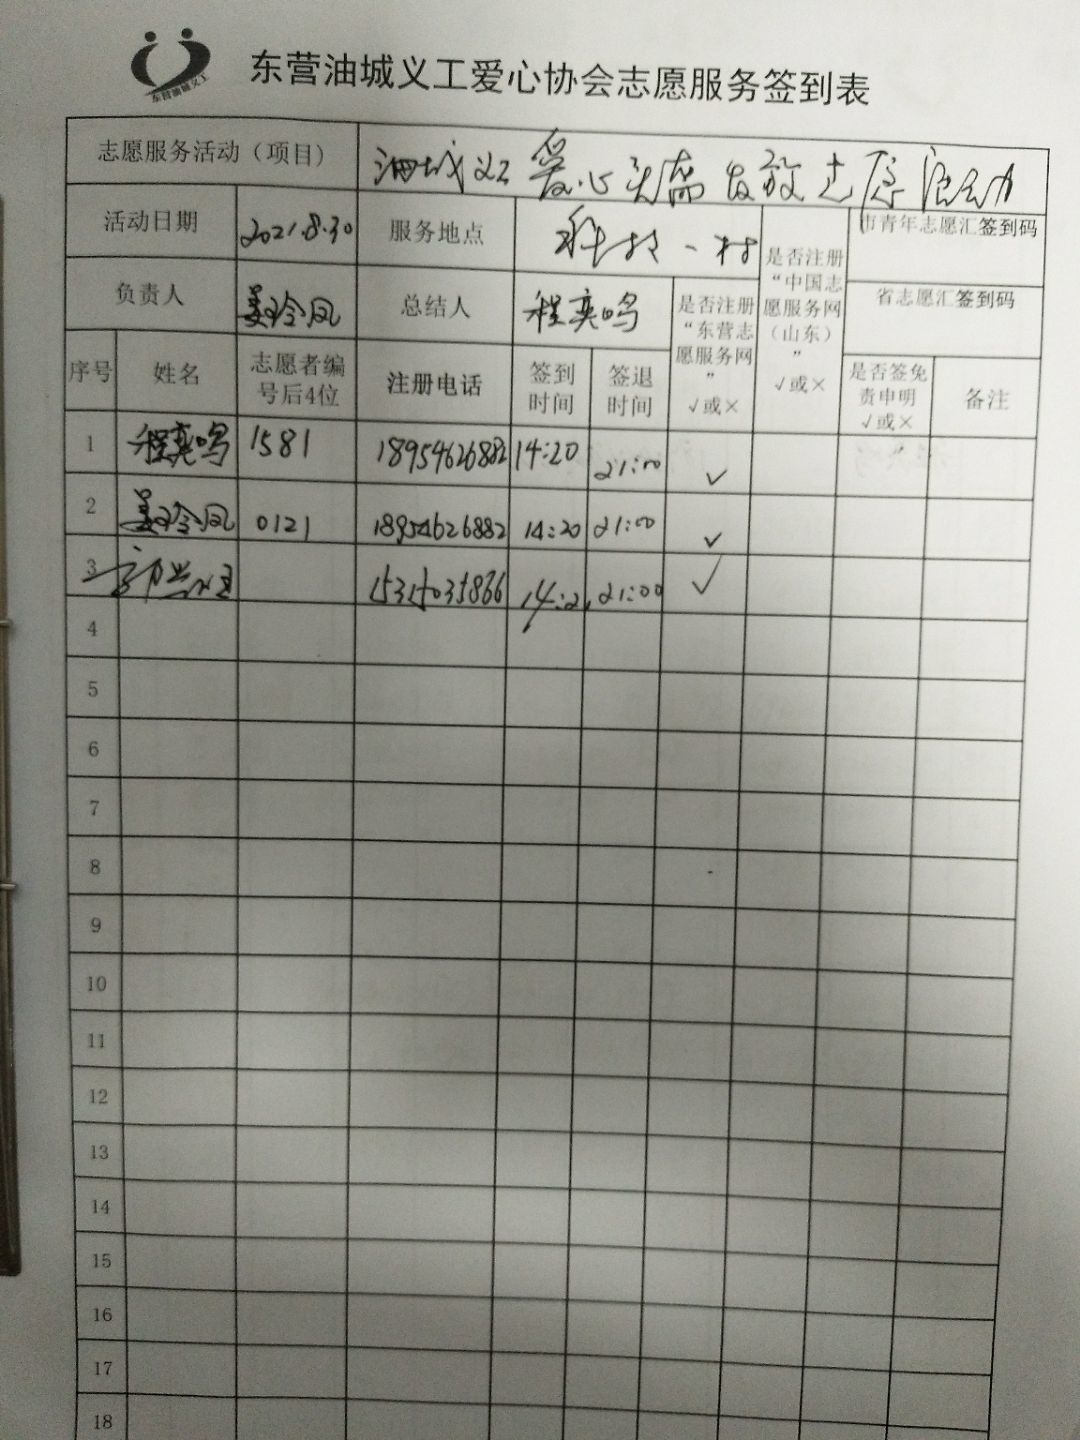 东营油城义工
东营油城义工爱心协会志愿服务签到表
志愿服务活动（项目） 油城义工爱心头盔发放志愿活动
活动日期 2021.8.30 服务地点 科技一村 是否注册“中国志愿服务网（山东）” √或× 市青年志愿汇签到码
负责人 姜玲凤 总结人 程奕鸣 是否注册“东营志愿服务网” √或× 省志愿汇签到码
序号 姓名 志愿者编号后4位 注册电话 签到时间 签退时间 是否签免责申明 √或× 备注
1 程奕鸣 1581 18954626882 14:20 21:00 ✓
2 姜玲凤 0121 18954626882 14:20 21:00 ✓
3 15315035866 14:2 21:00 ✓
4
5
6
7
8
9
10
11
12
13
14
15
16
17
18